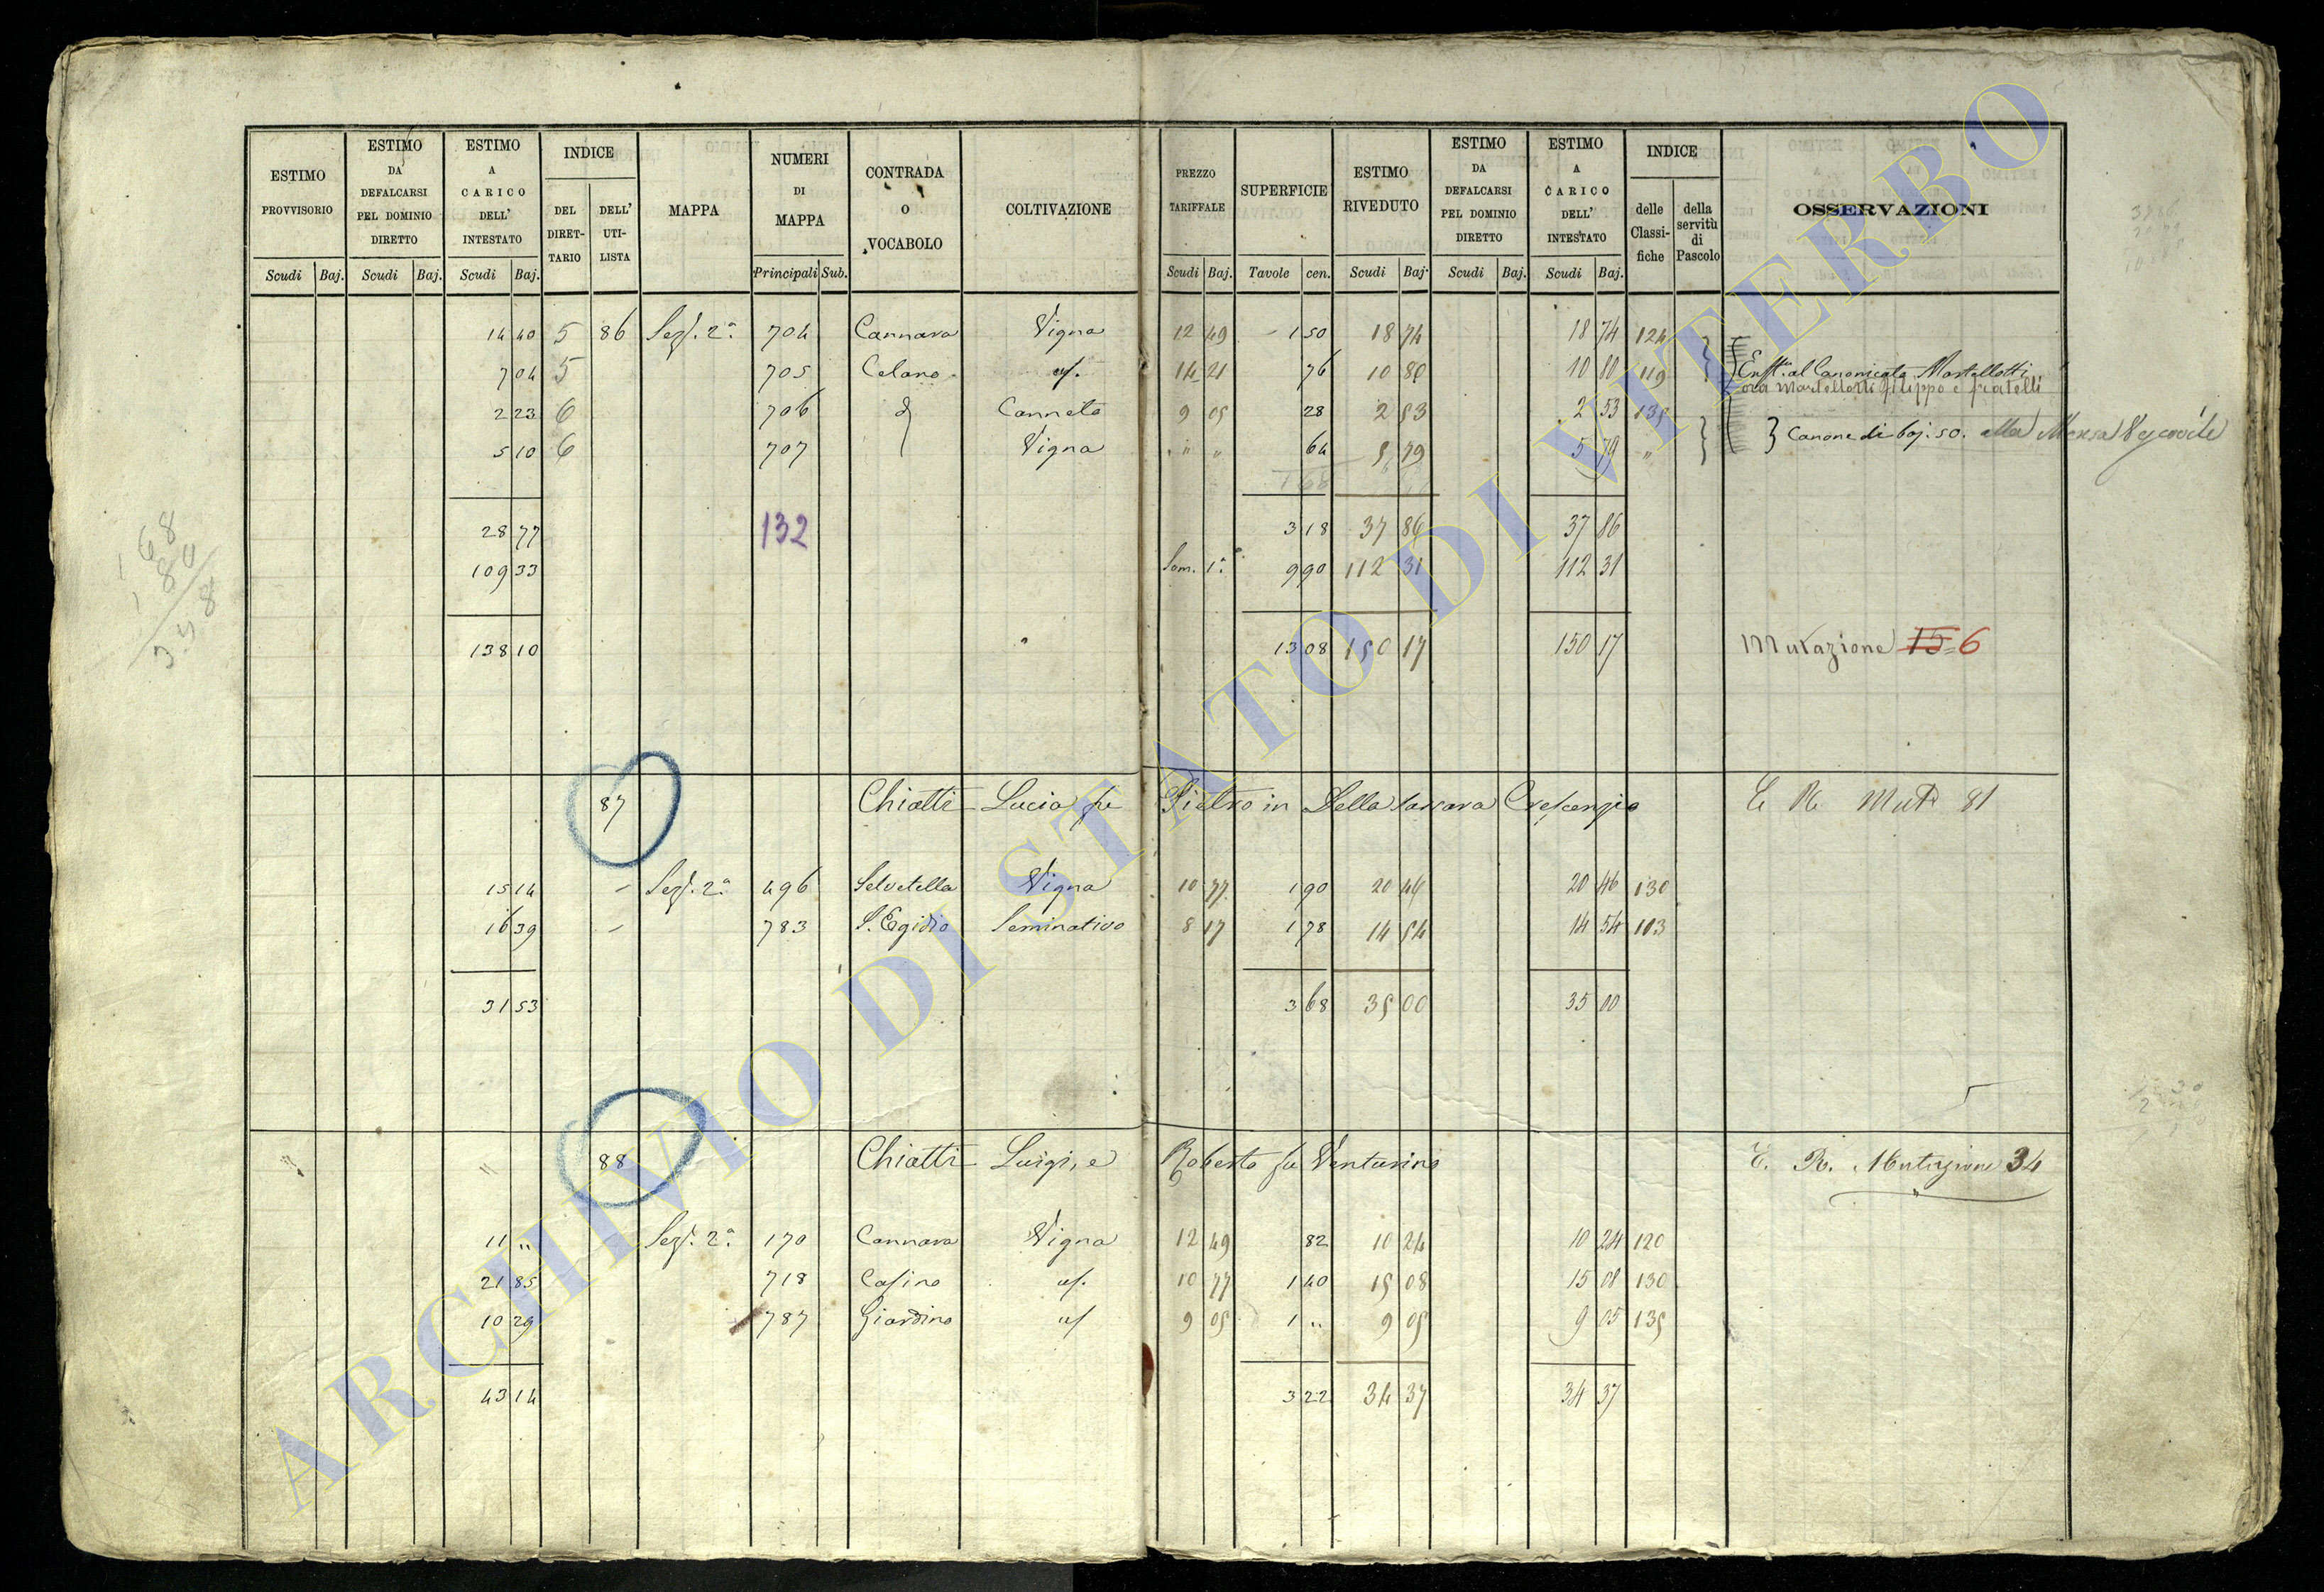 ESTIMO PROVVISORIO | ESTIMO DA DEFALCARSI PEL DOMINIO DIRETTO | ESTIMO A CARICO DELL' INTESTATO | INDICE DEL DIRET-TARIO | DELL' UTI-LISTA | MAPPA | NUMERI DI MAPPA | CONTRADA O VOCABOLO | COLTIVAZIONE | PREZZO TARIFFALE | SUPERFICIE | ESTIMO RIVEDUTO | ESTIMO DA DEFALCARSI PEL DOMINIO DIRETTO | ESTIMO A CARICO DELL' INTESTATO | INDICE delle Classi-fiche | della servitù di Pascolo | OSSERVAZIONI
Scudi Baj. | Scudi Baj. | Scudi Baj. | Principali Sub. | Scudi Baj. | Tavole cen. | Scudi Baj. | Scudi Baj. | Scudi Baj.
14 40 5 86 Sez. 2a 704 Cannara Vigna 12 49 1 50 18 74 18 74 124
7 04 5 705 Celano 14 21 76 10 80 10 80 119 Enft. al Canonicato Martellotti
ora Martellotti Filippo e fratelli
2 23 6 706 Canneto 9 05 28 2 53 2 53 135
5 10 6 707 Vigna " " 64 5 79 5 79 " Canone di baj. 50. alla Mensa Vescovile
28 77 132 3 18 37 86 37 86
109 33 Som. 1a 9 90 112 31 112 31
138 10 13 08 150 17 150 17 Mutazione 15 6
168
87 Chiatti Lucia fu Pietro in Della Crescenzio E R Mut 81
15 14 - Sez. 2a 496 Selvetella Vigna 10 77 1 90 20 46 20 46 130
16 39 - 783 S. Egidio Seminativo 8 17 1 78 14 54 14 54 103
31 53 3 68 35 00 35 00
88 Chiatti Luigi, e Roberto fu Venturino E. R. Mutazione 34
11 " Sez. 2a 170 Cannara Vigna 12 49 82 10 24 10 24 120
21 85 718 Casino 10 77 1 40 15 08 15 08 130
10 29 787 Giardino 9 05 1 " 9 05 9 05 135
43 14 3 22 34 37 34 37
ARCHIVIO DI STATO DI VITERBO